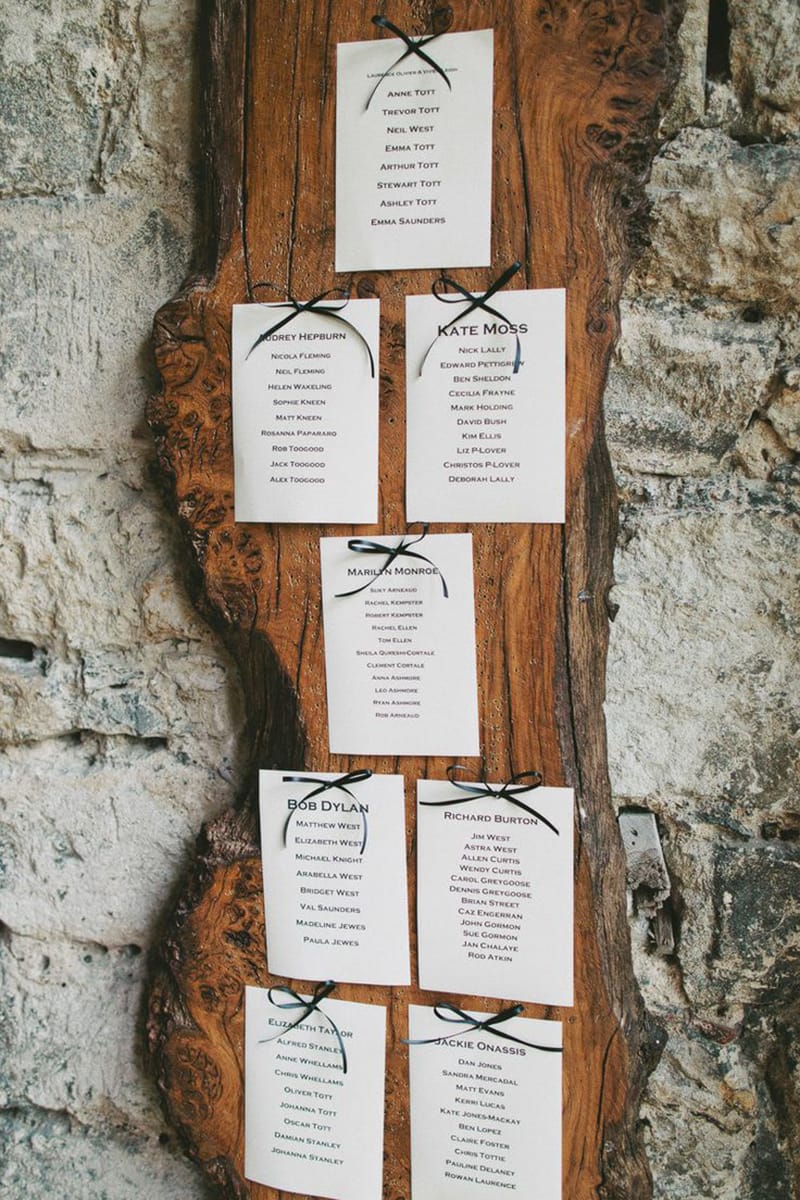 LAURENCE OLIVIER & VIVIEN LEIGH
ANNE TOTT
TREVOR TOTT
NEIL WEST
EMMA TOTT
ARTHUR TOTT
STEWART TOTT
ASHLEY TOTT
EMMA SAUNDERS
AUDREY HEPBURN
NICOLA FLEMING
NEIL FLEMING
HELEN WAKELING
SOPHIE KNEEN
MATT KNEEN
ROSANNA PAPARARO
ROB TOOGOOD
JACK TOOGOOD
ALEX TOOGOOD
KATE MOSS
NICK LALLY
EDWARD PETTIGREW
BEN SHELDON
CECILIA FRAYNE
MARK HOLDING
DAVID BUSH
KIM ELLIS
LIZ P-LOVER
CHRISTOS P-LOVER
DEBORAH LALLY
MARILYN MONROE
SUKY ARNEAUD
RACHEL KEMPSTER
ROBERT KEMPSTER
RACHEL ELLEN
TOM ELLEN
SHEILA QURESHI-CORTALE
CLEMENT CORTALE
ANNA ASHMORE
LEO ASHMORE
RYAN ASHMORE
ROB ARNEAUD
BOB DYLAN
MATTHEW WEST
ELIZABETH WEST
MICHAEL KNIGHT
ARABELLA WEST
BRIDGET WEST
VAL SAUNDERS
MADELINE JEWES
PAULA JEWES
RICHARD BURTON
JIM WEST
ASTRA WEST
ALLEN CURTIS
WENDY CURTIS
CAROL GREYGOOSE
DENNIS GREYGOOSE
BRIAN STREET
CAZ ENGERRAN
JOHN GORMON
SUE GORMON
JAN CHALAYE
ROD ATKIN
ELIZABETH TAYLOR
ALFRED STANLEY
ANNE WHELLAMS
CHRIS WHELLAMS
OLIVER TOTT
JOHANNA TOTT
OSCAR TOTT
DAMIAN STANLEY
JOHANNA STANLEY
JACKIE ONASSIS
DAN JONES
SANDRA MERCADAL
MATT EVANS
KERRI LUCAS
KATE JONES-MACKAY
BEN LOPEZ
CLAIRE FOSTER
CHRIS TOTTIE
PAULINE DELANEY
ROWAN LAURENCE